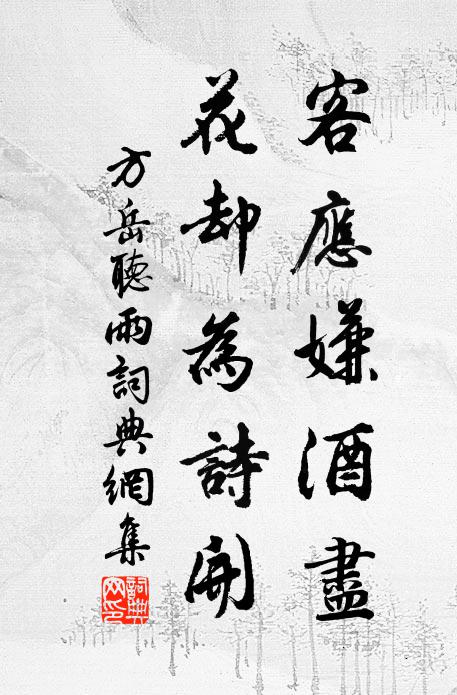 客應嫌酒盡
花却為詩開
方岳聽雨詞典網集
詞典网印